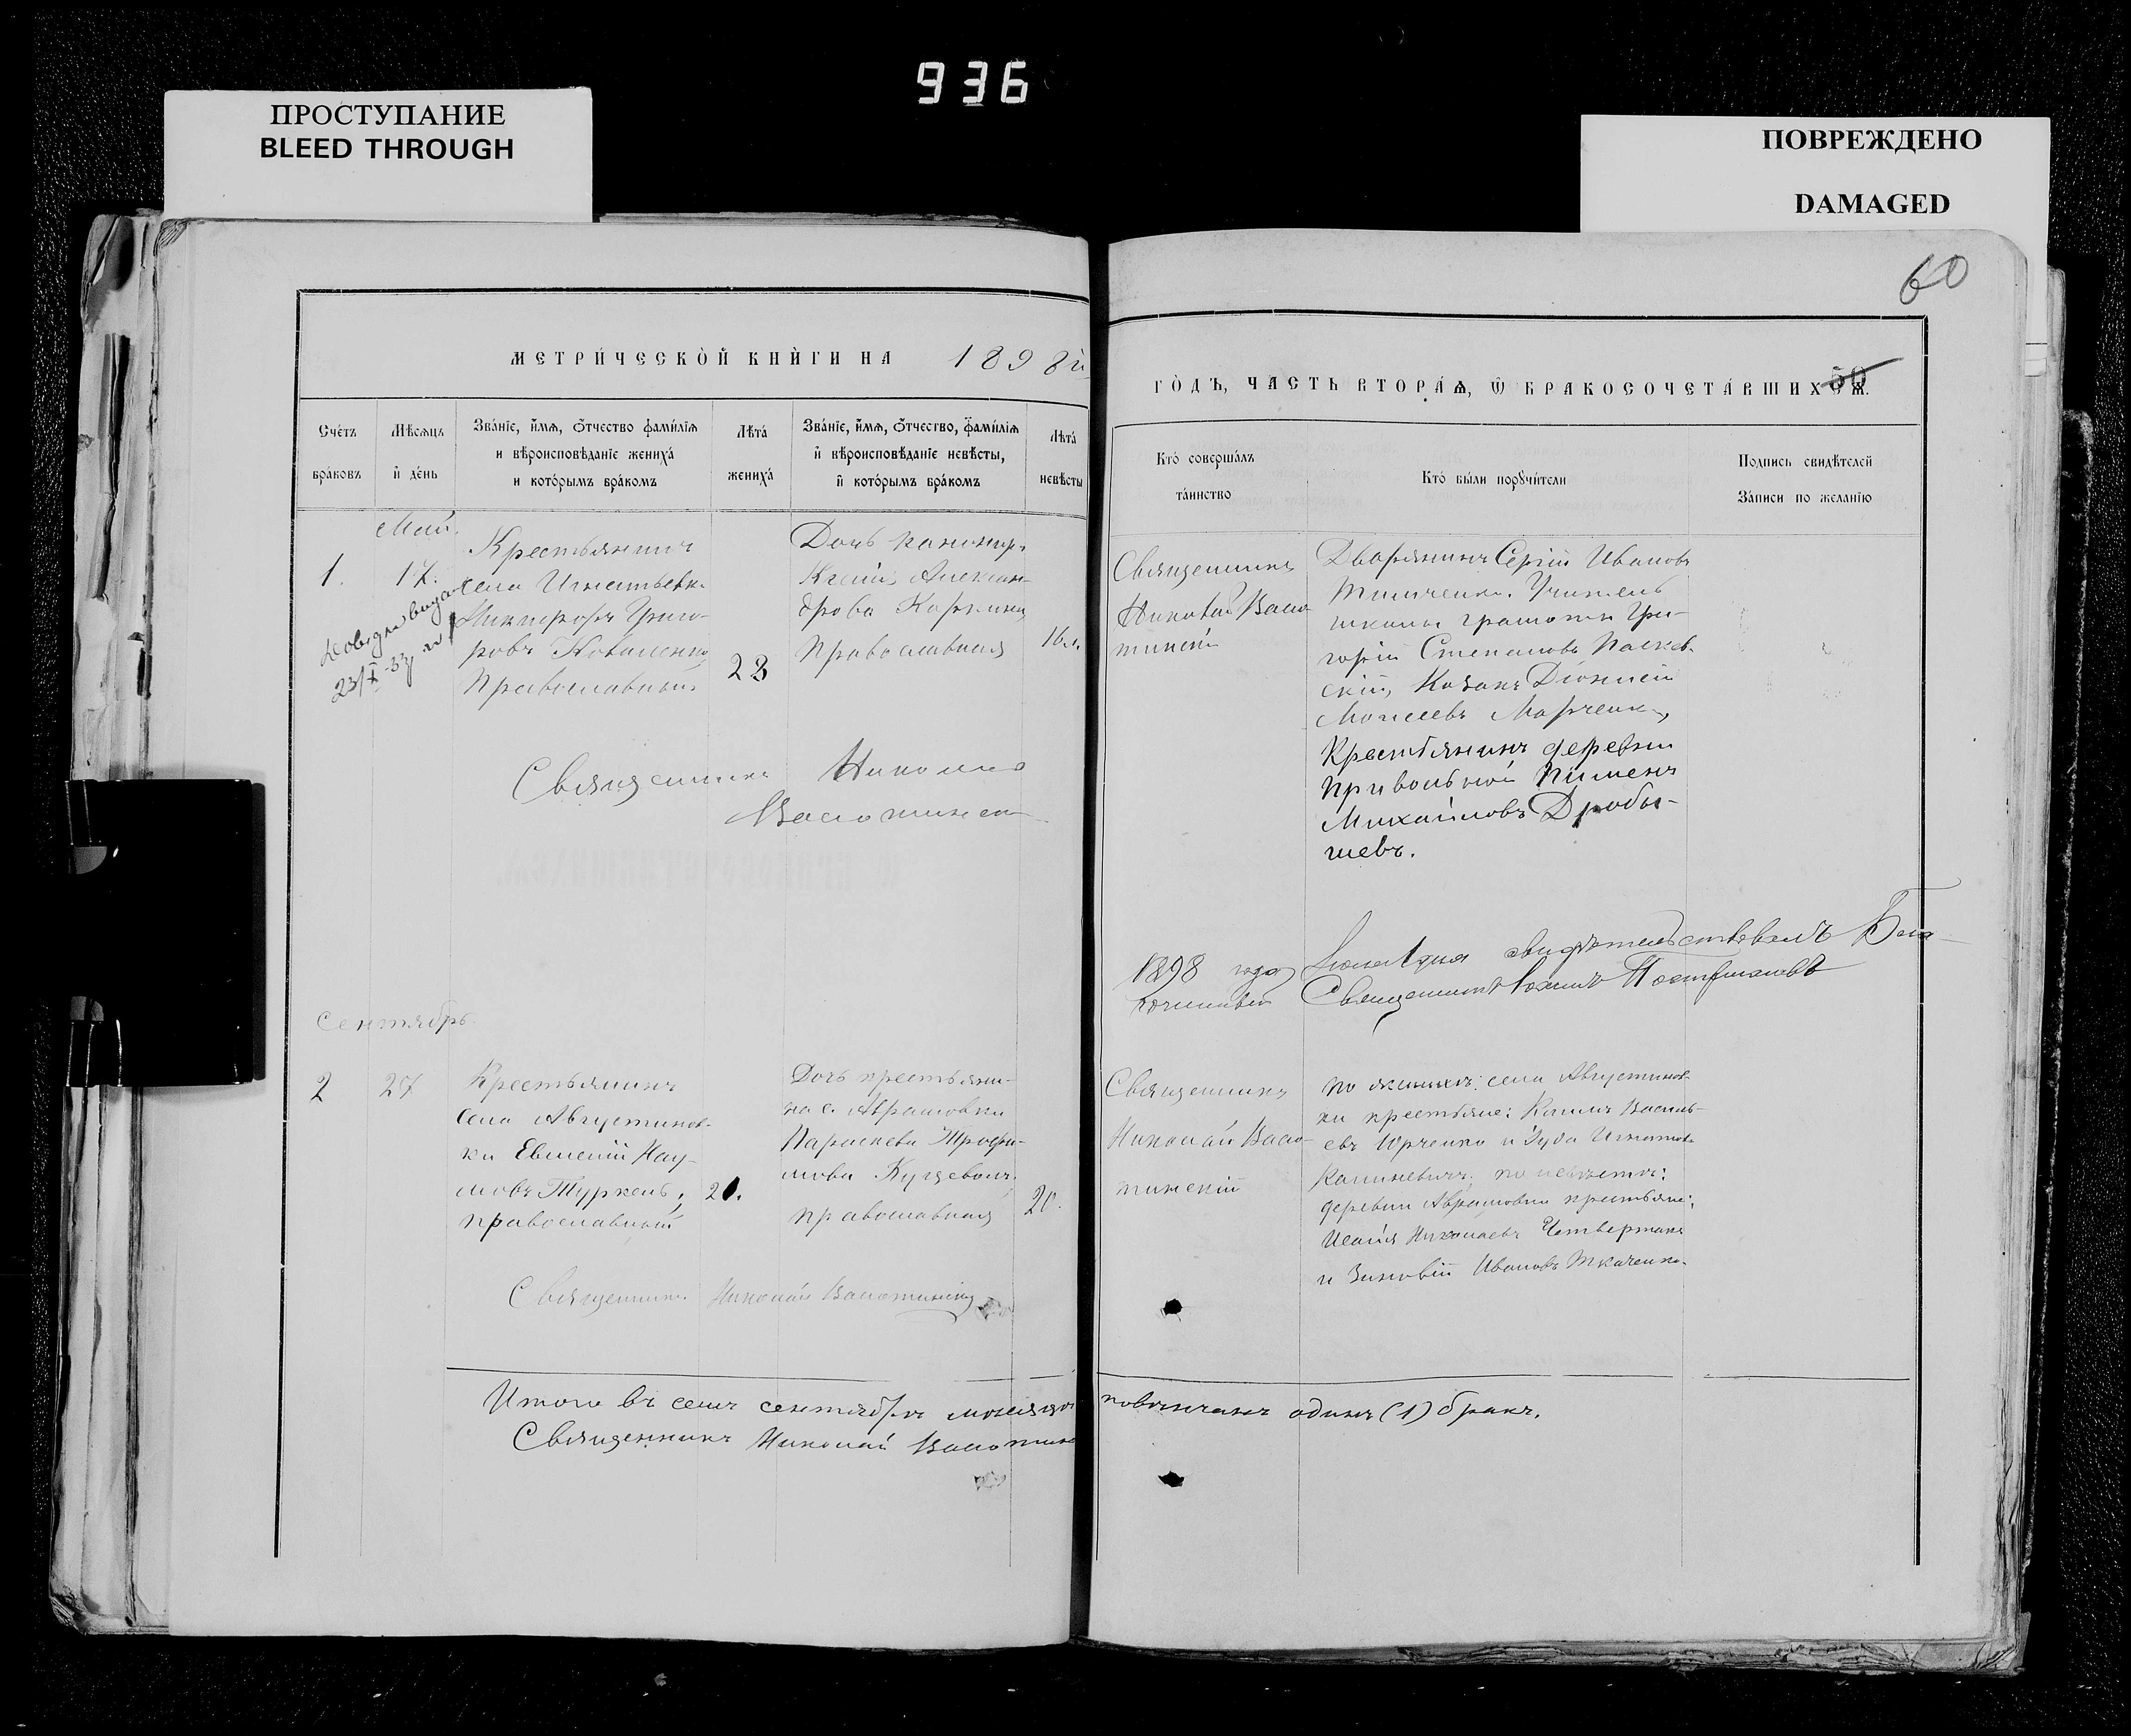 936
ПРОСТУПАНИЕ
BLEED THROUGH
ПОВРЕЖДЕНО
DAMAGED
60
МЕТРИ́ЧЕСКО̀Й КНИ́ГИ НА 1898й
ГО́ДЪ, ЧАСТЬ ВТОРА́Ѧ, Ѡ БРАКОСОЧЕТА́ВШИХСѦ.
50
Сче́тъ бра́ковъ
Мѣ́сѧцъ и҆ де́нь
Зва́нїе, и҆́мѧ, ѻ҆́тчество фами́лїѧ
и вѣроисповѣ́данїе жениха̀
и кото́рымъ бра́комъ
Лѣ́та̀ жениха̀
Зва́нїе, и҆́мѧ, ѻ҆́тчество, фами́лїѧ
и҆ вѣроисповѣ́данїе невѣ́сты,
и҆ кото́рымъ бра́комъ
Лѣ́та̀ невѣ́сты
Кто̀ соверша́лъ
та́инство
Кто̀ бы́ли порꙋчи́тели
Подпись свидѣ́телей
За́писи по жела́нїю
Май.
1.
17.
Крестьянинъ
села Игнатьевки
Никифоръ Григо-
ровъ Коваленко,
Православный
28
Дочь
Алексан-
дрова
Православная
16 л.
23/X-37
Священникъ
Николай Васю-
тинскій
Дворянинъ Сергій Ивановъ
Тимченко. Учитель
школы грамоты Гри-
горій Степановъ Паскев-
скій, Козакъ Діонисій
Моисеевъ Марченко,
Крестьянинъ деревни
Привольной Пименъ
Михайловъ Дробы-
шевъ.
Священникъ Николай
Васютинскій
1898 года Іюня 1 дня свидѣтельствовалъ Бла-
гочинный Священникъ
Сентябрь
2
27
Крестьянинъ
села Августинов-
ки Евгеній Нау-
мовъ Туркель,
православный
21.
Дочь крестьяни-
на с. Аврамовки
Параскева Трофи-
мова
православная
20.
Священникъ
Николай Васю-
тинскій
по женихѣ: села Августинов-
ки крестьяне: Климъ Василь-
евъ Юрченко и Іуда Игнатовъ
по невѣстѣ:
деревни Аврамовки крестьяне:
Исаія Николаевъ Четвертакъ
и Зиновій Ивановъ Ткаченко.
Священникъ Николай Васютинскій
Итого въ семъ сентябрѣ мѣсяцѣ повѣнчанъ одинъ (1) бракъ.
Священникъ Николай Васютинс